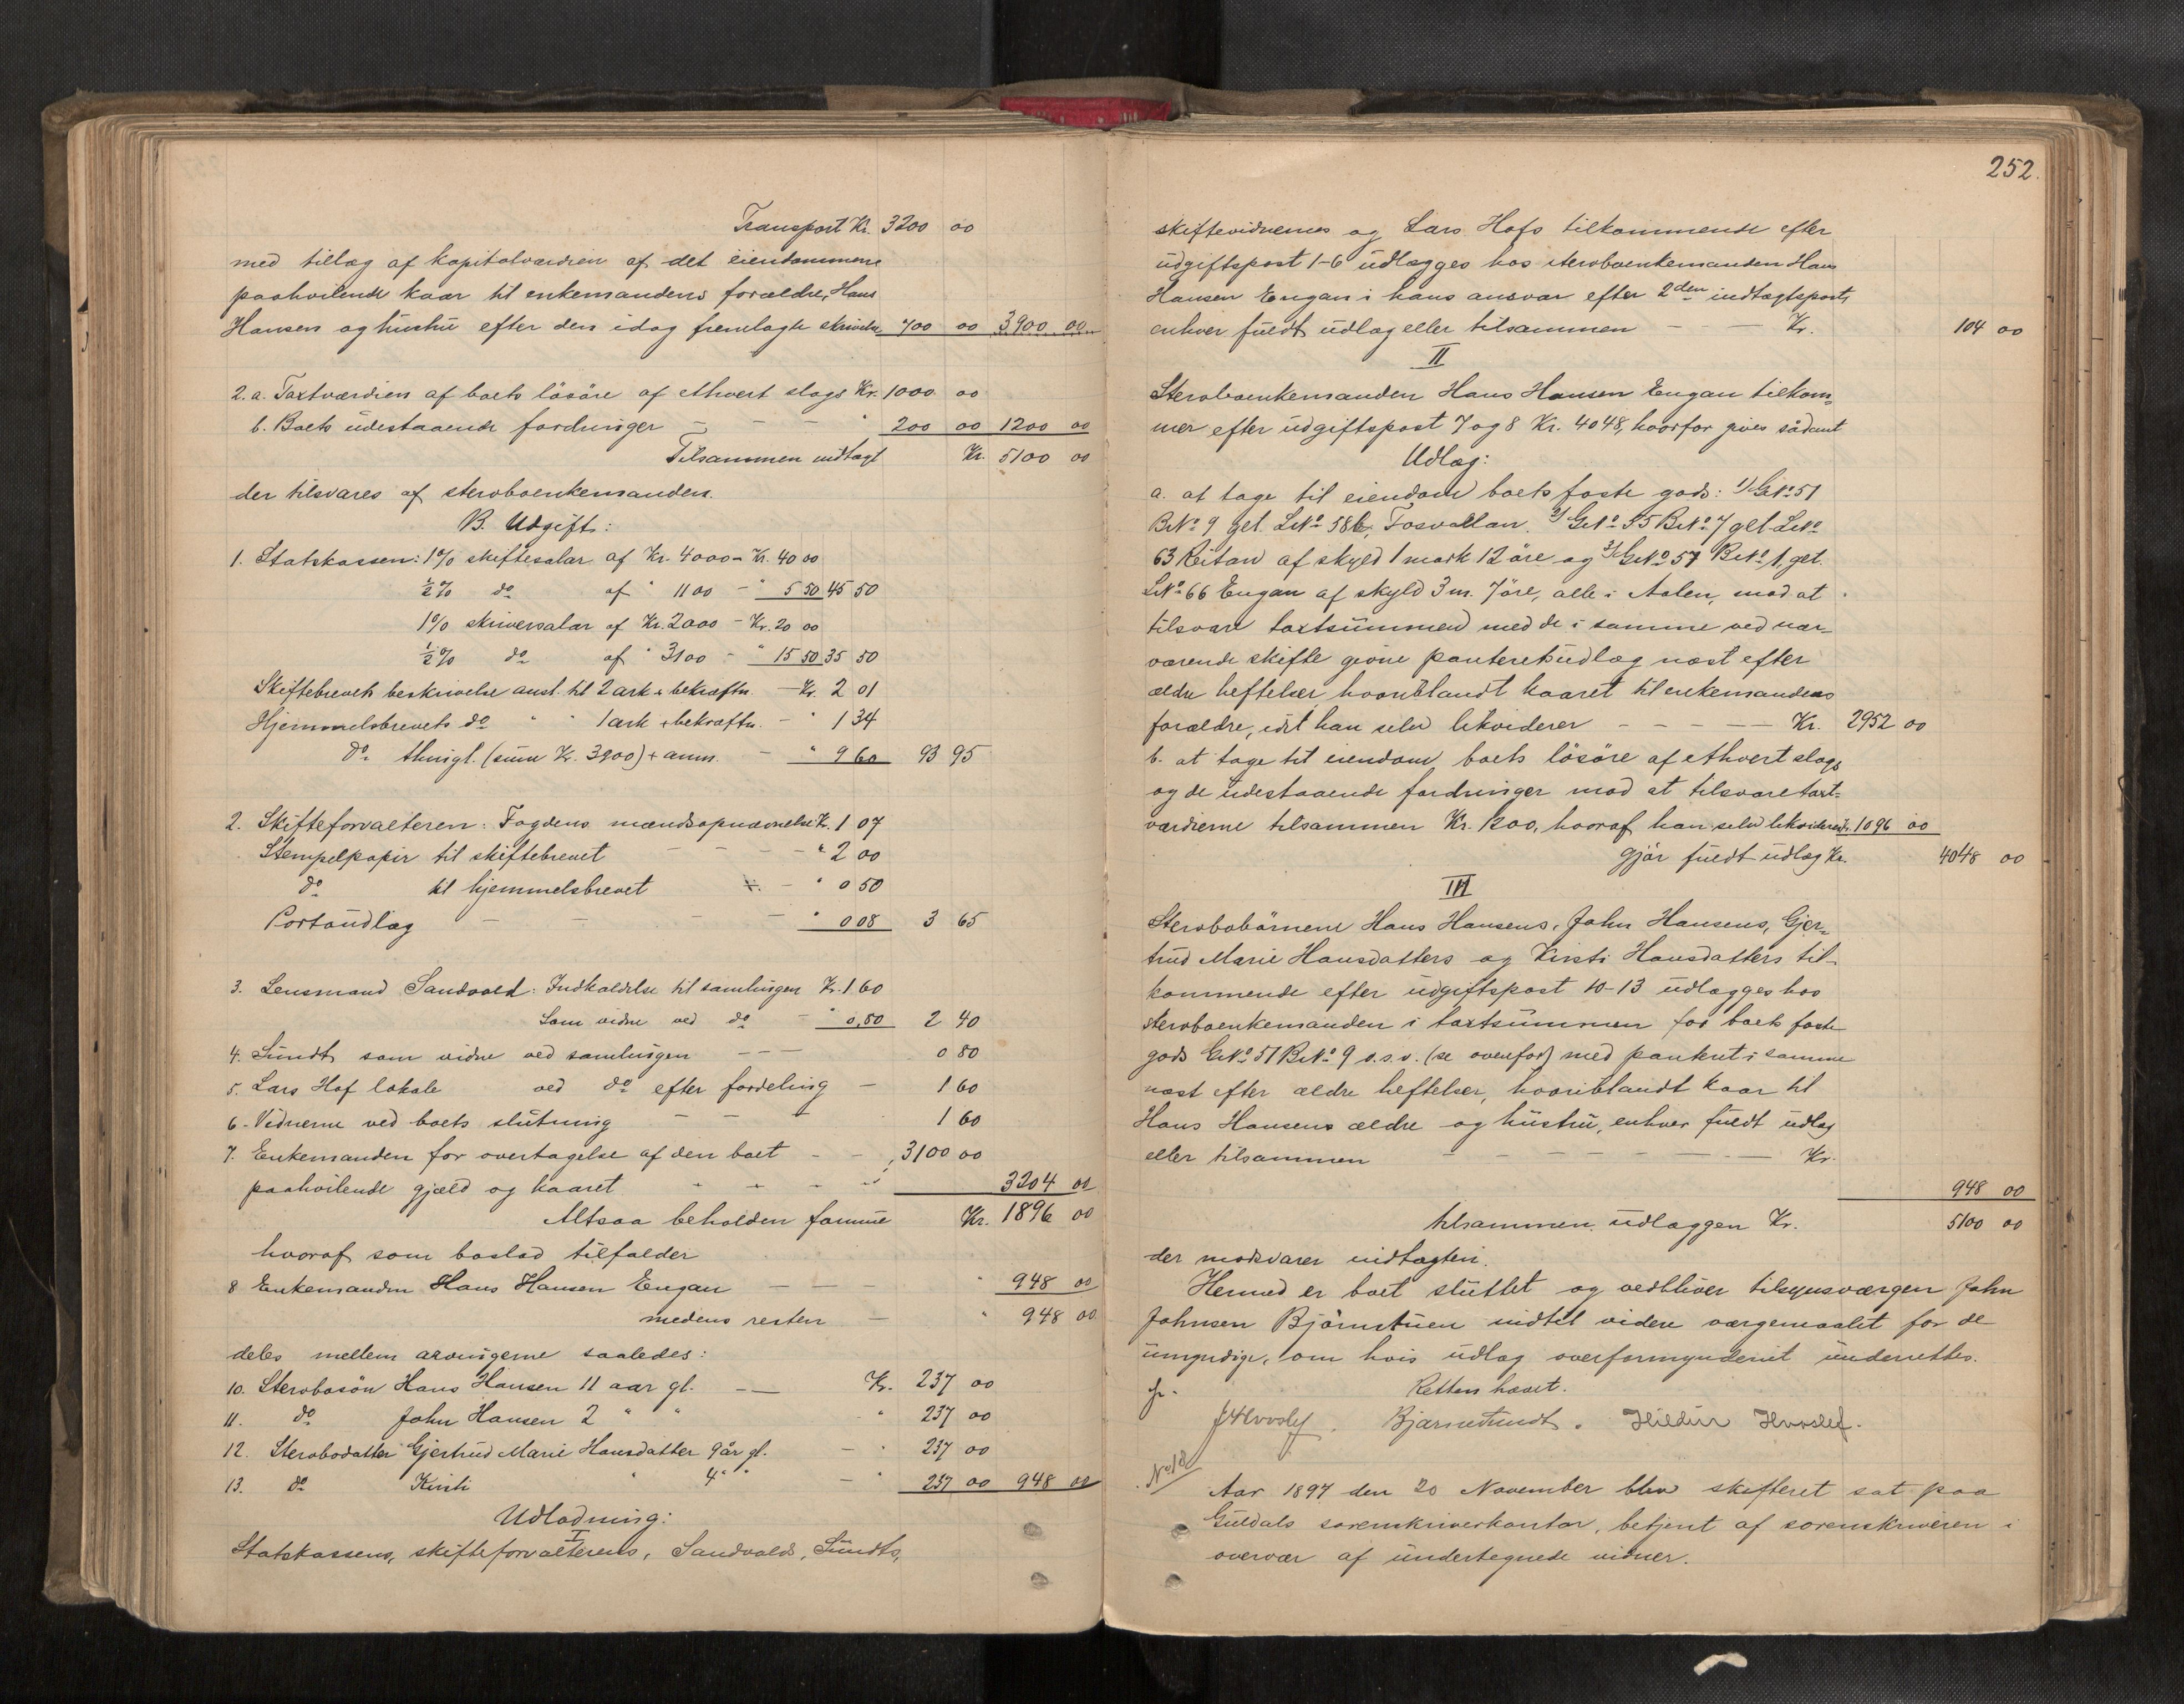 Transport Kr. 3200 00
med tillæg af kapitalværdien af det eiendommene
paahvilende kaar til enkemandens forældre, Hans
Hansen og hustru efter den idag fremlagte skrivelse 700 00 3900 00
2. a. Taxtværdien af boets løsøre af ethvert slags Kr. 1000 00
b. Boets udestaaende fordringer - - - " 200 00 1200 00
Tilsammen indtægt Kr. 5100 00
der tilsvares af sterboenkemanden.
B. Udgift:
1. Statskassen: 1% skiftesalar af Kr. 4000 - Kr. 40 00
½% do af " 1100 - " 5 50 45 50
1% skriversalar af Kr. 2000 - Kr. 20 00
½% do af " 3100 - " 15 50 35 50
Skiftebrevets beskrivelse ansl. til 2 ark + bekræftn. - Kr. 2 01
Hjemmelsbrevets do " " 1 ark + bekræftn. - " 1 34
do thingl. (sum Kr. 3900) + anm. - " 9 60 93 95
2. Skifteforvalteren: Fogdens mændsopnævnelse Kr. 1 07
Stempelpapir til skiftebrevet - - - " 2 00
do til hjemmelsbrevet - " 0 50
Portoudlæg - - - - " 0 08 3 65
3. Lensmand Sandvold: Indkaldelse til samlingen Kr. 1 60
Som vidne ved do - " 0,80 2 40
4. Sundt som vidne ved samlingen - - - 0 80
5. Lars Hof lokale ved do efter fordeling - 1 60
6. Vidnerne ved boets slutning - - - 1 60
7. Enkemanden for overtagelse af den boet - - 3100 00
paahvilende gjæld og kaaret - - - - 3204 00
Altsaa beholden formue Kr. 1896 00
hvoraf som boslod tilfalder
8 Enkemanden Hans Hansen Engan - - - " 948 00
medens resten - " 948 00
deles mellem arvingerne saaledes:
10. Sterbosøn Hans Hansen 11 aar gl. - - Kr. 237 00
11. do John Hansen 2 " " " 237 00
12. Sterbodatter Gjertrud Marie Hansdatter 9 år gl. - " 237 00
13. do Kirsti " 4 " " - " 237 00 948 00
Udlodning:
I
Statskassens, skifteforvalterens, Sandvolds, Sundts,
252.
skiftevidnernes og Lars Hofs tilkommende efter
udgiftspost 1-6 udlægges hos sterboenkemanden Hans
Hansen Engan i hans ansvar efter 2den indtægtspost,
enhver fuldt udlæg eller tilsammen - - Kr. 104 00
II
Sterboenkemanden Hans Hansen Engan tilkom-
mer efter udgiftspost 7 og 8 Kr. 4048, hvorfor gives sådant
Udlæg:
a. at tage til eiendom boets faste gods: 1/ GNo 51
BNo 9 gel. LNo 58b, Fosvollan 2/ GNo 55 BNo 7 gel. LNo
63 Reitan af skyld 1 mark 12 øre og 3/ GNo 57 BNo 1, gel.
LNo 66 Engan af skyld 3 m. 7 øre, alle i Aalen, mod at
tilsvare taxtsummen med de i samme ved nær-
værende skifte givne panteretsudlæg næst efter
ældre heftelser, hvoriblandt kaaret til enkemandens
forældre, idet han selv likviderer - - - - - Kr. 2952 00
b. at tage til eiendom boets løsøre af ethvert slags
og de udestaaende fordringer mod at tilsvare taxt-
værdierne tilsammen Kr. 1200, hvoraf han selv likviderer 1096 00
gjør fuldt udlæg Kr. 4048 00
III
Sterbobørnene Hans Hansens, John Hansens, Gjer-
trud Marie Hansdatters og Kirsti Hansdatters til-
kommende efter udgiftspost 10-13 udlægges hos
sterboenkemanden i taxtsummen for boets faste
gods GNo 51 BNo 9 o.s.v. (se ovenfor) med panteret i samme
næst efter ældre heftelser, hvoriblandt kaar til
Hans Hansens ældre og hustru, enhver fuldt udlæg
eller tilsammen - - - - - - - Kr.
948 00
tilsammen udlæggen Kr. 5100 00
der modsvarer indtægten.
Hermed er boet sluttet og vedbliver tilsynsværgen John
Johnsen Bjørnstuen indtil videre værgemaalet for de
umyndige, om hvis udlæg overformynderiet underrettes.
Retten hævet.
Bjarne Sundt. Hildur Hvoslef.
No 18/
Aar 1897 den 20 November blev skifteret sat paa
Guldals sorenskriverkontor, betjent af sorenskriveren i
overvær af undertegnede vidner.